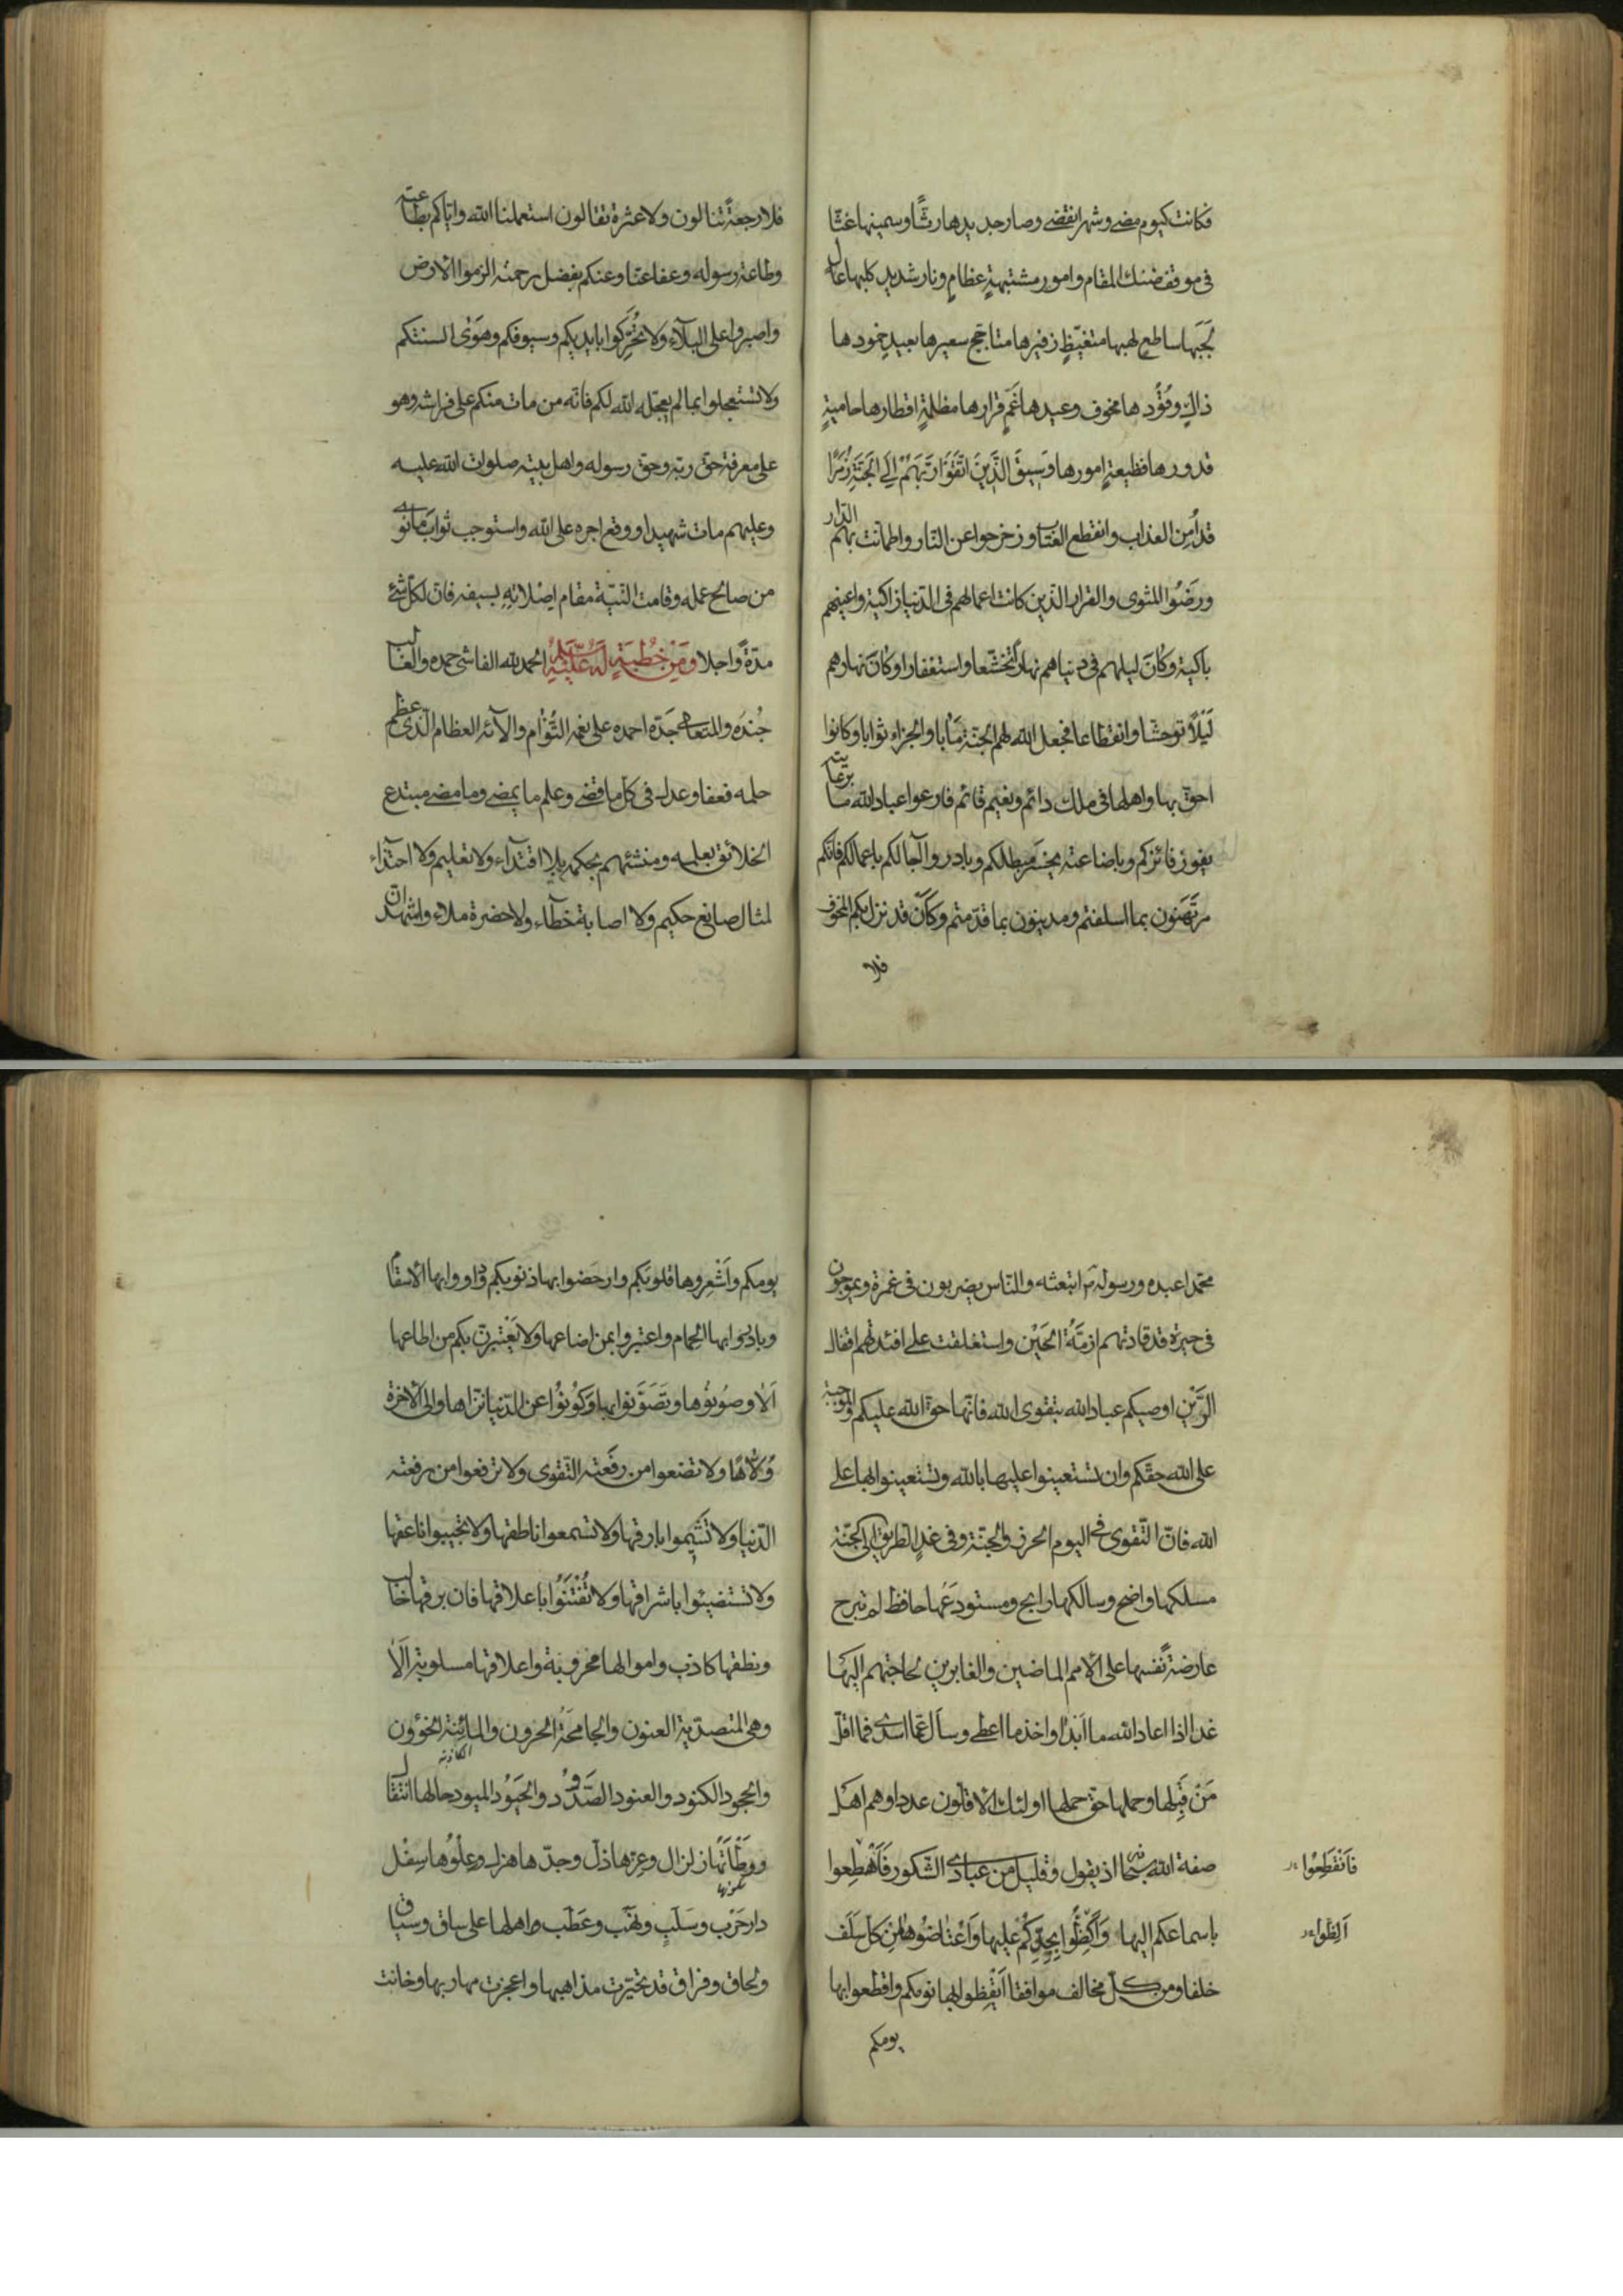 فكانت كيوم مضى وشهر انقضى وصار جديدها رثّا وسمينها غثّا
فى موقف ضنك المقام وامور مشتبهةٍ عظامٍ ونار شديد كلبها عال
لجبها ساطع لهبها متغيّظٍ زفيرها متاجّج سعيرها بعيدٍ خمودها
ذاكٍ وقُوْدها مخوف وعيدها غَمٍ قرارها مظلمةٍ اقطارها حاميةٍ
قدورها فظيعةٍ امورها وَسِيقَ الَّذِينَ اتَّقَوْا رَبَّهُمْ اِلَى الجَنَّةِ زُمَرًا
قد اُمِن العذاب وانقطع العتاب وزحزحوا عن النّار واطمانّت بهم الدّار
ورضُوا المثوى والقرار الّذين كانت اعمالهم فى الدّنيا زاكية واعينهم
باكية وكانَ ليلهم فى دنياهم نهارا تخشّعا واستغفارا وكانَ نهارهم
لَيْلًا توحشّا وانقطاعا فجعل الله لهم الجنّة مَأبا والجزاء ثوابا وكانوا
احقّ بها واهلها فى ملك دائم ونعيم قائم فارعوا عباد الله ما برعايته
يفوز فائزكم وباضاعته يخسَر مبطلكم وبادروا آجالكم باعمالكم فانّكم
مرتَهَنون بما اسلفتم ومدينون بما قدّمتم وكأَنّ قد نزل بكم المخوف
فلا
فلا رجعةً تنالون ولا عثرة تقالون استعملنا الله وايّاكم بطاعته
وطاعة رسوله وعفا عنّا وعنكم بفضل رحمته الزموا الارض
واصبروا على البلآء ولا تُحَرِّكوا بايديكم وسيوفكم وهوَى السنتكم
ولا تستعجلوا بما لم يعجّله الله لكم فانّه من مات منكم على فراشه وهو
على معرفة حق ربّه وحق رسوله واهل بيته صلوات الله عليه
وعليهم مات شهيدا ووقع اجره على الله واستوجب ثوابَ ما نوى
من صالح عمله وقامت النيّة مقام اِصْلاتِهِ بسيفه فانّ لكلّ شئ
مدّةً واجلا وَمِنْ خُطْبَةٍ لَهُ عَلَيْهِ السَّلَامُ الحمد لله الفاشى حمده والغالب
جُندَه والمتعالى جَدّه احمده على نعمه التُّؤام والآئه العظام الّذى عظم
حلمه فعفا وعدل فى كلّ ما قضى وعلم ما يمضى وما مضى مبتدع
الخلائق بعلمه ومنشئهم بحكمه بلا اقتدآء ولا تعليم ولا احتذاء
لمثال صانع حكيم ولا اصابة خطآء ولا حضرة ملاء واشهد انّ
محمّدا عبده ورسوله ابتعثه والنّاس يضربون فى غمرة ويموجون
فى حيرة قد قادتهم ازمّةُ الحَيْن واستغلقت على افئدتهم اقفال
الرَّيْنِ اوصيكم عباد الله بتقوى الله فانّها حق الله عليكم والموجبة
على الله حقّكم وان تستعينوا عليها بالله وتستعينوا بها على
الله فانّ التّقوى فى اليوم الحرز والجُنّة وفى غدٍ الطّريق الى الجنّة
مسلكها واضح وسالكها رابح ومستودعَها حافظ لم تبرح
عارضةً نفسها على الامم الماضين والغابرين لحاجتهم اليها
غدا اذا اعاد الله ما اَبْدا واخذ ما اعطى وسأل عمّا اسدى فما اقلّ
مَنْ قَبِلها وحملها حق حملها اولئك الاقلّون عددا وهم اهل
صفة الله سبحانه اذ يقول وقليل من عبادى الشّكور فَاَهْطِعوا
فَانْقَطِعُوْا
باسماعكم اليها وَاَكِظُّوا بجِدّكم عليها وَاعْتاضُوها مِن كلّ سَلَف
اَلِظُّوا
خلفا ومن كلّ مخالف موافقا اَيْقِظوا بها نومكم واقطعوا بها
يومكم
يومكم واَشْعِروها قلوبَكم وارحَضوا بها ذنوبكم وداووا بها الاسقام
وبادروا بها الحِمام واعتبروا بمن اضاعها ولا يَعْتَبِرنّ بكم من اطاعها
اَلا وصُونوها وتَصَوَّنوا بها وَكُونُوا عن الدّنيا نزّاها والى الآخرة
وُلّاهًا ولا تضعوا من رفَعته التّقوى ولا ترفعوا من رفعته
الدّنيا ولا تَشِيموا بارقها ولا تسمعوا ناطقها ولا تجيبوا ناعقها
ولا تستضيئوا باشراقها ولا تُفْتَنُوا باعلاقها فان برقها خالب
ونطقها كاذب واموالها محروبة واعلاقها مسلوبة اَلا
وهى المتصدّية العنون والجامحَةُ الحرون والمائنة الخؤون
والجحود الكنود والعنود الصَّدُود والحَيُود الميود حالها انتقال
ووَطْأَتُها زلزال وعزها ذلّ وجدّها هزل وعِلْوُها سِفْل
دار حَرْب وسَلَبٍ ونَهْب وعَطَب واهلها على ساق وسياق
ولحاق وفراق قد تحيّرت مذاهبها واعجزت مهاربها وخانت